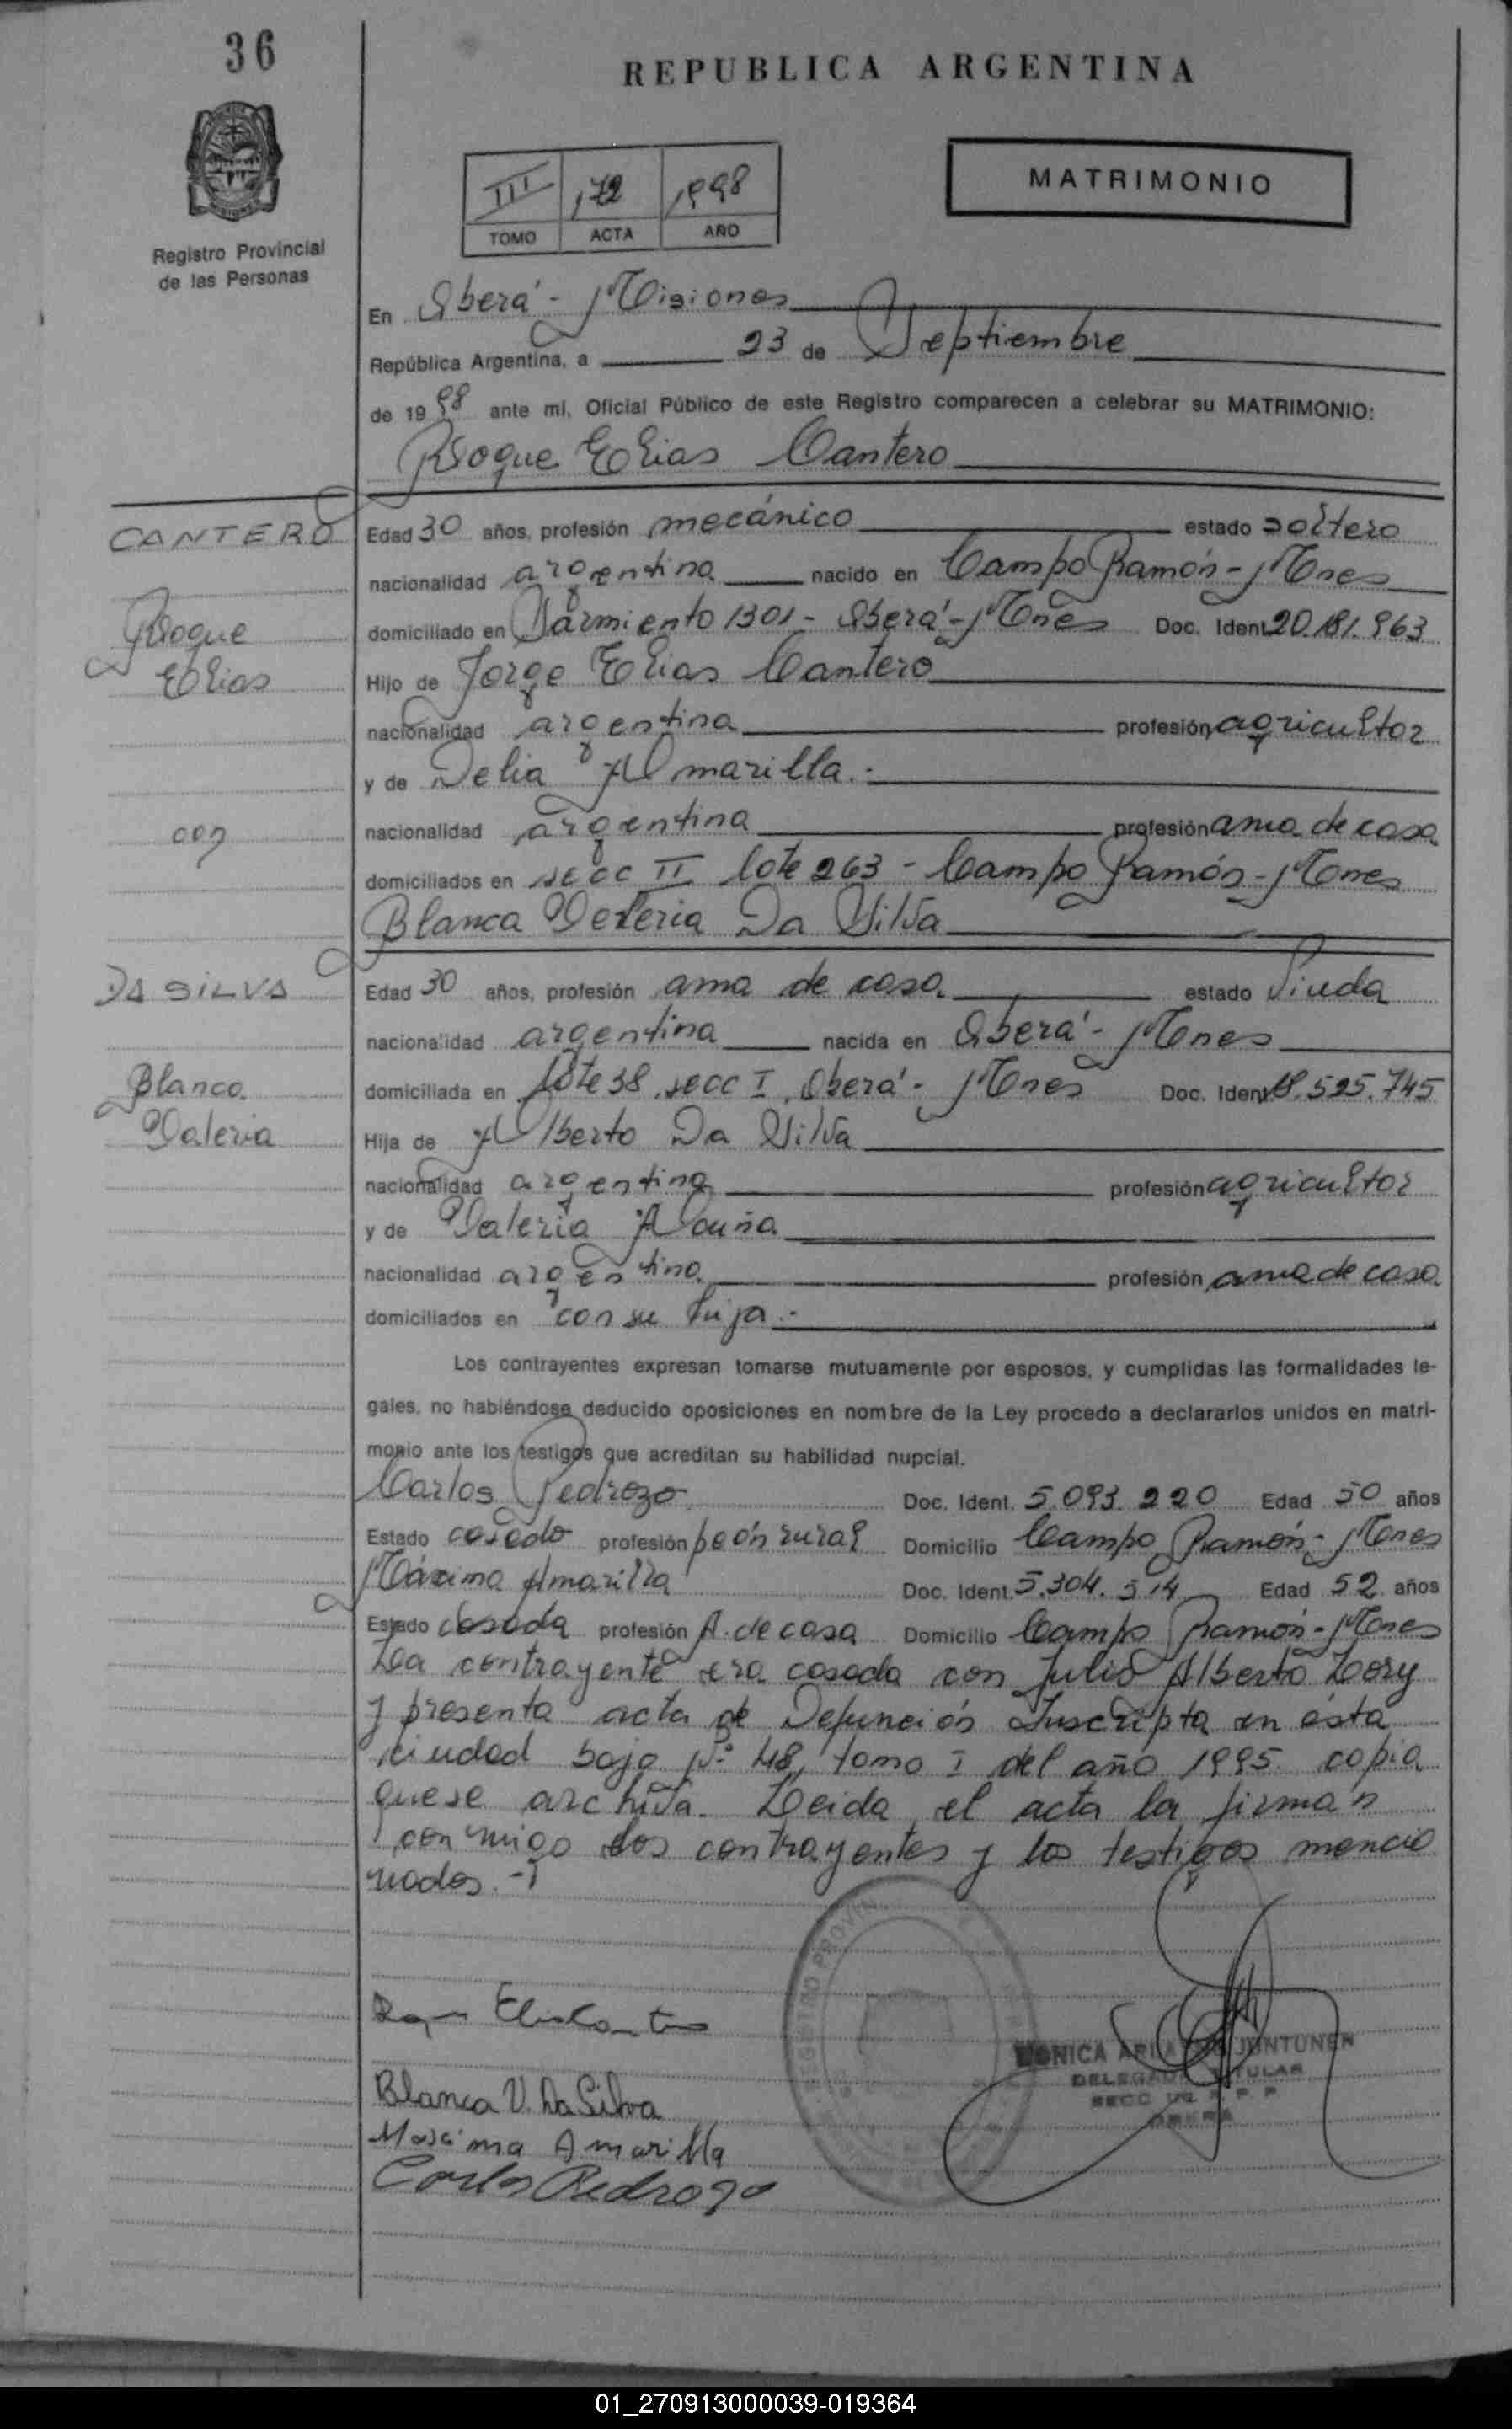 36
REPUBLICA ARGENTINA
III 172 1998
TOMO ACTA AÑO
MATRIMONIO
Registro Provincial
de las Personas
En Oberá - Misiones
República Argentina, a 23 de Septiembre
de 1998 ante mi, Oficial Público de este Registro comparecen a celebrar su MATRIMONIO:
Roque Elias Cantero
CANTERO
Edad 30 años, profesión mecánico estado soltero
nacionalidad argentina nacido en Campo Ramón - Mnes
Roque
domiciliado en Sarmiento 1301 - Oberá - Mnes Doc. Ident. 20.181.963
Elias
Hijo de Jorge Elias Cantero
nacionalidad argentina profesión agricultor
y de Delia Amarilla.-
con
nacionalidad argentina profesión ama de casa
domiciliados en secc II lote 263 - Campo Ramón - Mnes
Blanca Valeria Da Silva
DA SILVA
Edad 30 años, profesión ama de casa estado Viuda
nacionalidad argentina nacida en Oberá - Mnes
Blanca
domiciliada en lote 38 secc I Oberá - Mnes Doc. Ident. 18.525.745
Valeria
Hija de Alberto Da Silva
nacionalidad argentina profesión agricultor
y de Valeria Acuña
nacionalidad argentina profesión ama de casa
domiciliados en con su hija.-
Los contrayentes expresan tomarse mutuamente por esposos, y cumplidas las formalidades le-
gales, no habiéndose deducido oposiciones en nombre de la Ley procedo a declararlos unidos en matri-
monio ante los testigos que acreditan su habilidad nupcial.
Carlos Pedrozo Doc. Ident. 5.093.220 Edad 50 años
Estado casado profesión peón rural Domicilio Campo Ramón - Mnes
Máxima Amarilla Doc. Ident. 5.304.514 Edad 52 años
Estado casada profesión A. de casa Domicilio Campo Ramón - Mnes
La contrayente era casada con Julio Alberto Lory
y presenta acta de Defunción Inscripta en ésta
ciudad bajo Nº 48, tomo I del año 1995. copia
que se archiva. Leida el acta la firman
conmigo los contrayentes y los testigos mencio
nados.-
Roque Elias Cantero
Blanca V. Da Silva
Maxima Amarilla
Carlos Pedrozo
REGISTRO PROVIN
MONICA JUNTUNEN
DELEGADA TITULAR
SECC. R. P. P.
OBERA
01_270913000039-019364